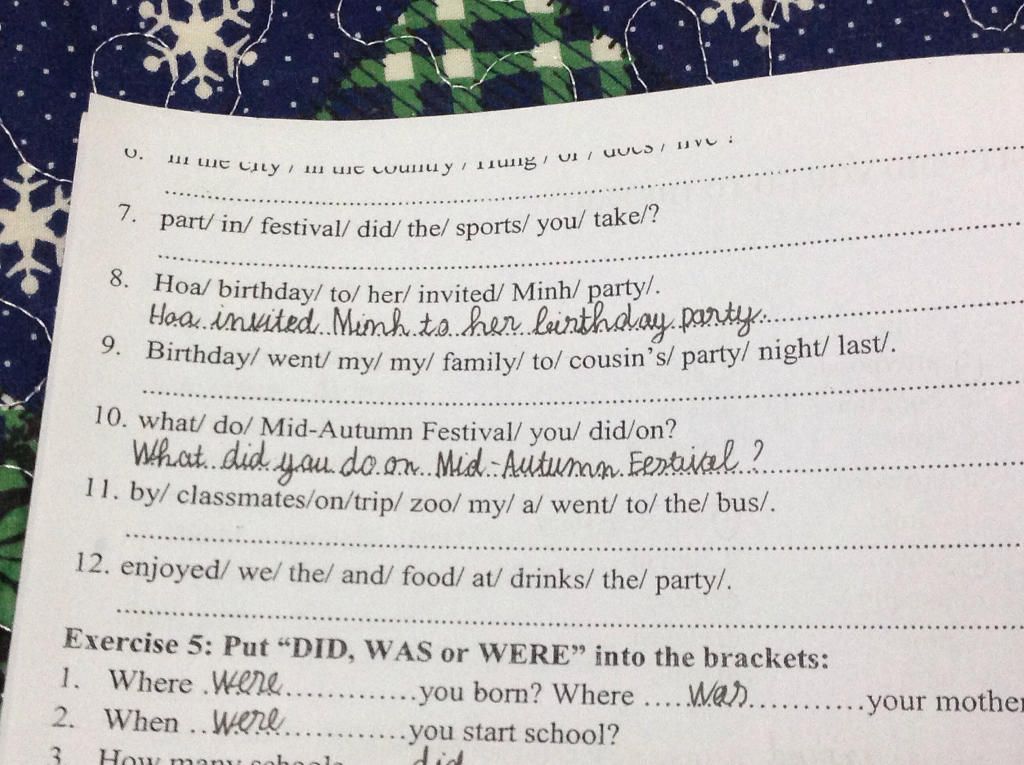 6. in the city / in the country / Hung / or / does / live ?
7. part/ in/ festival/ did/ the/ sports/ you/ take/?
8. Hoa/ birthday/ to/ her/ invited/ Minh/ party/.
Hoa invited Minh to her birthday party.
9. Birthday/ went/ my/ my/ family/ to/ cousin's/ party/ night/ last/.
10. what/ do/ Mid-Autumn Festival/ you/ did/on?
What did you do on Mid-Autumn Festival?
11. by/ classmates/on/trip/ zoo/ my/ a/ went/ to/ the/ bus/.
12. enjoyed/ we/ the/ and/ food/ at/ drinks/ the/ party/.
Exercise 5: Put “DID, WAS or WERE” into the brackets:
1. Where .were.............you born? Where ....was...........your mother
2. When ..were.............you start school?
3. How many schools did